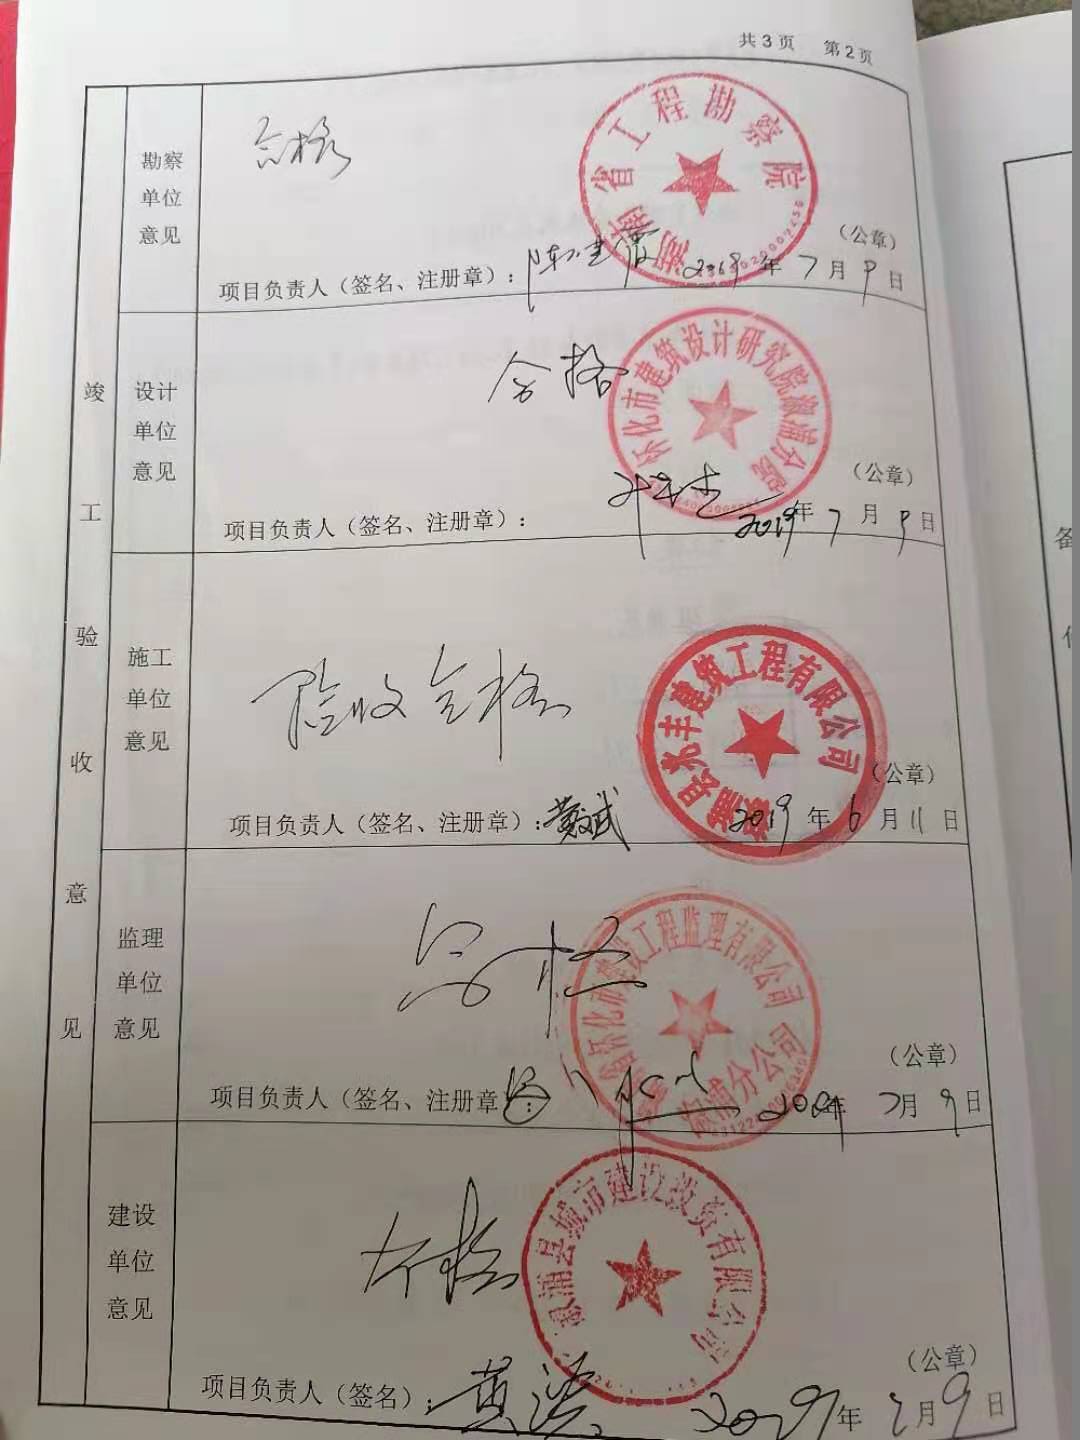 共3页 第2页
竣工验收意见
勘察单位意见
合格
湖南省工程勘察院
(公章)
项目负责人(签名、注册章):
2019年7月9日
设计单位意见
合格
怀化市建筑设计研究院溆浦分院
(公章)
项目负责人(签名、注册章):
2019年7月9日
施工单位意见
验收合格
溆浦县永丰建筑工程有限公司
(公章)
项目负责人(签名、注册章):黄斌
2019年6月11日
监理单位意见
合格
怀化市建设工程监理有限公司
溆浦分公司
(公章)
项目负责人(签名、注册章
2019年7月9日
建设单位意见
合格
溆浦县城市建设投资有限公司
(公章)
项目负责人(签名):黄
2019年7月9日
备